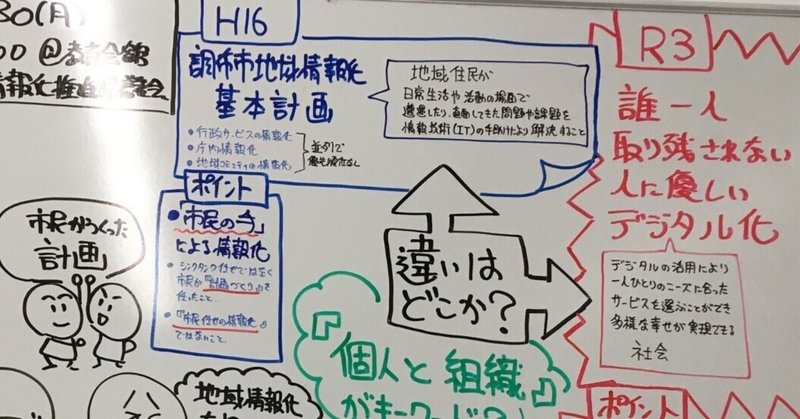 30(月)
H16
調布市地域情報化
基本計画
地域住民が
日常生活や活動の場面で
遭遇したり、直面してきた問題や課題を
情報技術(IT)の手助けにより解決すること
・行政サービスの情報化
・庁内情報化
・地域コミュニティの情報化
並列で
ポイント
・「市民の手」
による情報化
・シンクタンク任せではなく
市民が『計画づくり』を
行ったこと。
・『市民任せの情報化』
ではないこと。
市民がつくった
計画
違いは
どこか?
『個人と組織』
がキーワード?
地域情報化
R3
誰一人
取り残されない
人に優しい
デジタル化
デジタルの活用により
一人ひとりのニーズに合った
サービスを選ぶことができ
多様な幸せが実現できる
社会
ポイント